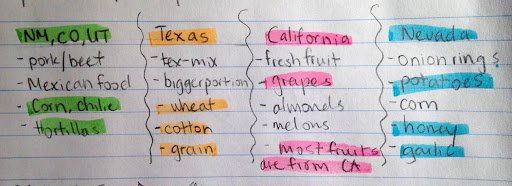 NM, CO, UT
- pork/beef
- Mexican food
- Corn, chilie
- tortillas
Texas
- tex-mix
- bigger portion
- wheat
- cotton
- grain
California
- fresh fruit
- grapes
- almonds
- melons
- most fruits
are from CA
Nevada
- onion rings
- potatoes
- corn
- honey
- garlic